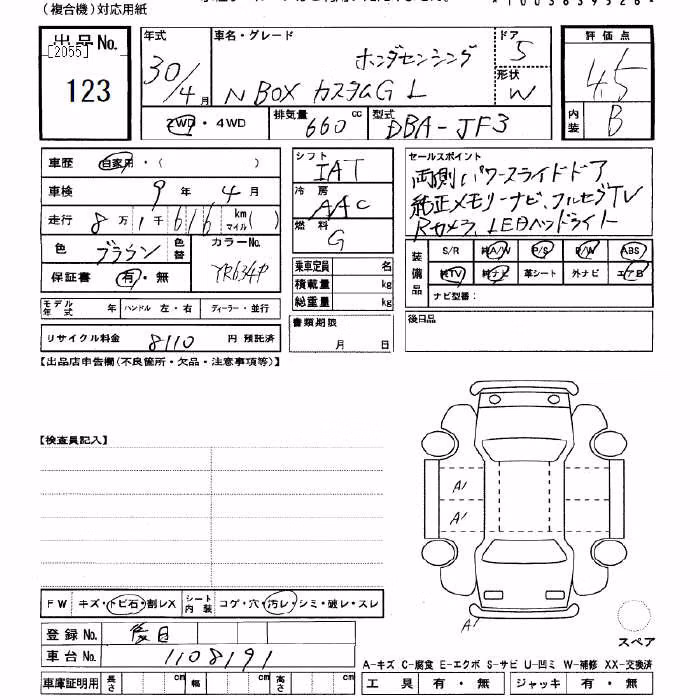 (複合機)対応用紙
出品No.
[2055]
123
年式
30/4月
車名・グレード
ホンダセンシング
N BOX カスタムG L
ドア
5
形状
W
評価点
4.5
内装
B
2WD・4WD
排気量
660cc
型式
DBA-JF3
車歴 自家用・( )
車検 9年 4月
走行 8万 1千 616 km(マイル)
色 ブラウン 色替
カラーNo.
YR634P
保証書 有・無
シフト
IAT
冷房
AAC
燃料
G
乗車定員 名
積載量 kg
総重量 kg
セールスポイント
両側パワースライドドア
純正メモリーナビ、フルセグTV
Rカメラ、LEDヘッドライト
装備品
S/R 純A/W P/S P/W ABS
純TV 純ナビ 革シート 外ナビ エアB
ナビ型番:
モデル年式 年 ハンドル 左・右 ディーラー・並行
リサイクル料金 8110 円 預託済
書類期限
月 日
後日品
【出品店申告欄(不良箇所・欠品・注意事項等)】
【検査員記入】
A1
A1
A1
FW キズ・トビ石・割レX シート内装 コゲ・穴・汚レ・シミ・破レ・スレ
登録No. 後日
車台No. 1108191
車庫証明用 長さ cm 幅 cm 高さ cm
スペア
A-キズ C-腐食 E-エクボ S-サビ U-凹ミ W-補修 XX-交換済
工具 有・無 ジャッキ 有・無